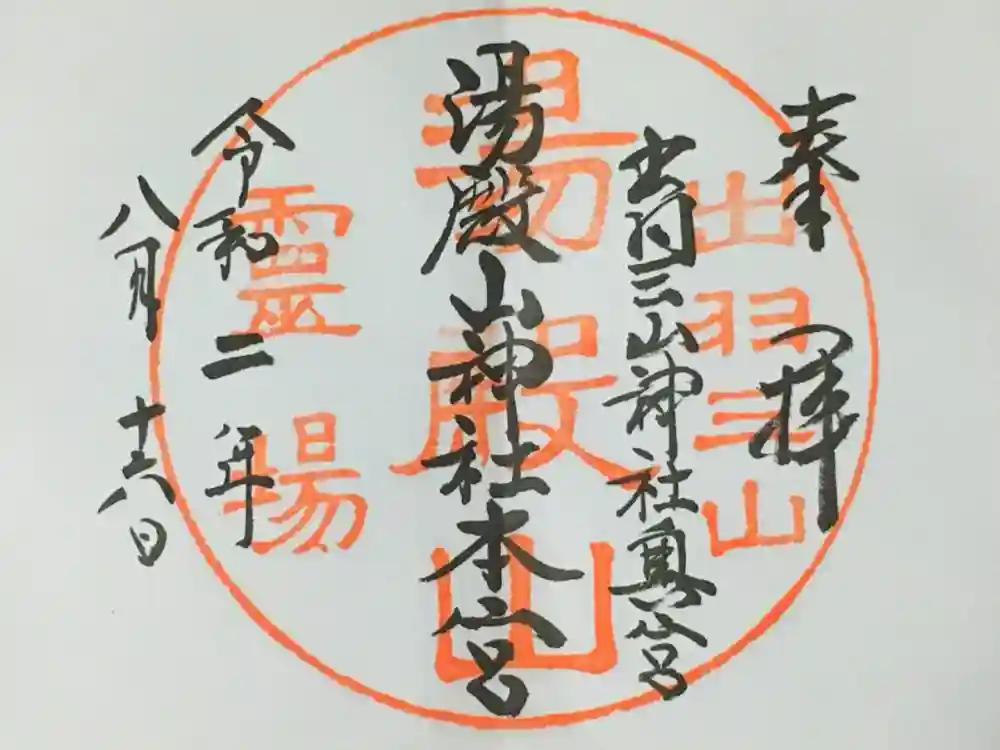 奉拝
出羽三山神社奥宮
湯殿山神社本宮
令和二年
八月十六日
出羽三山
湯殿山
靈場